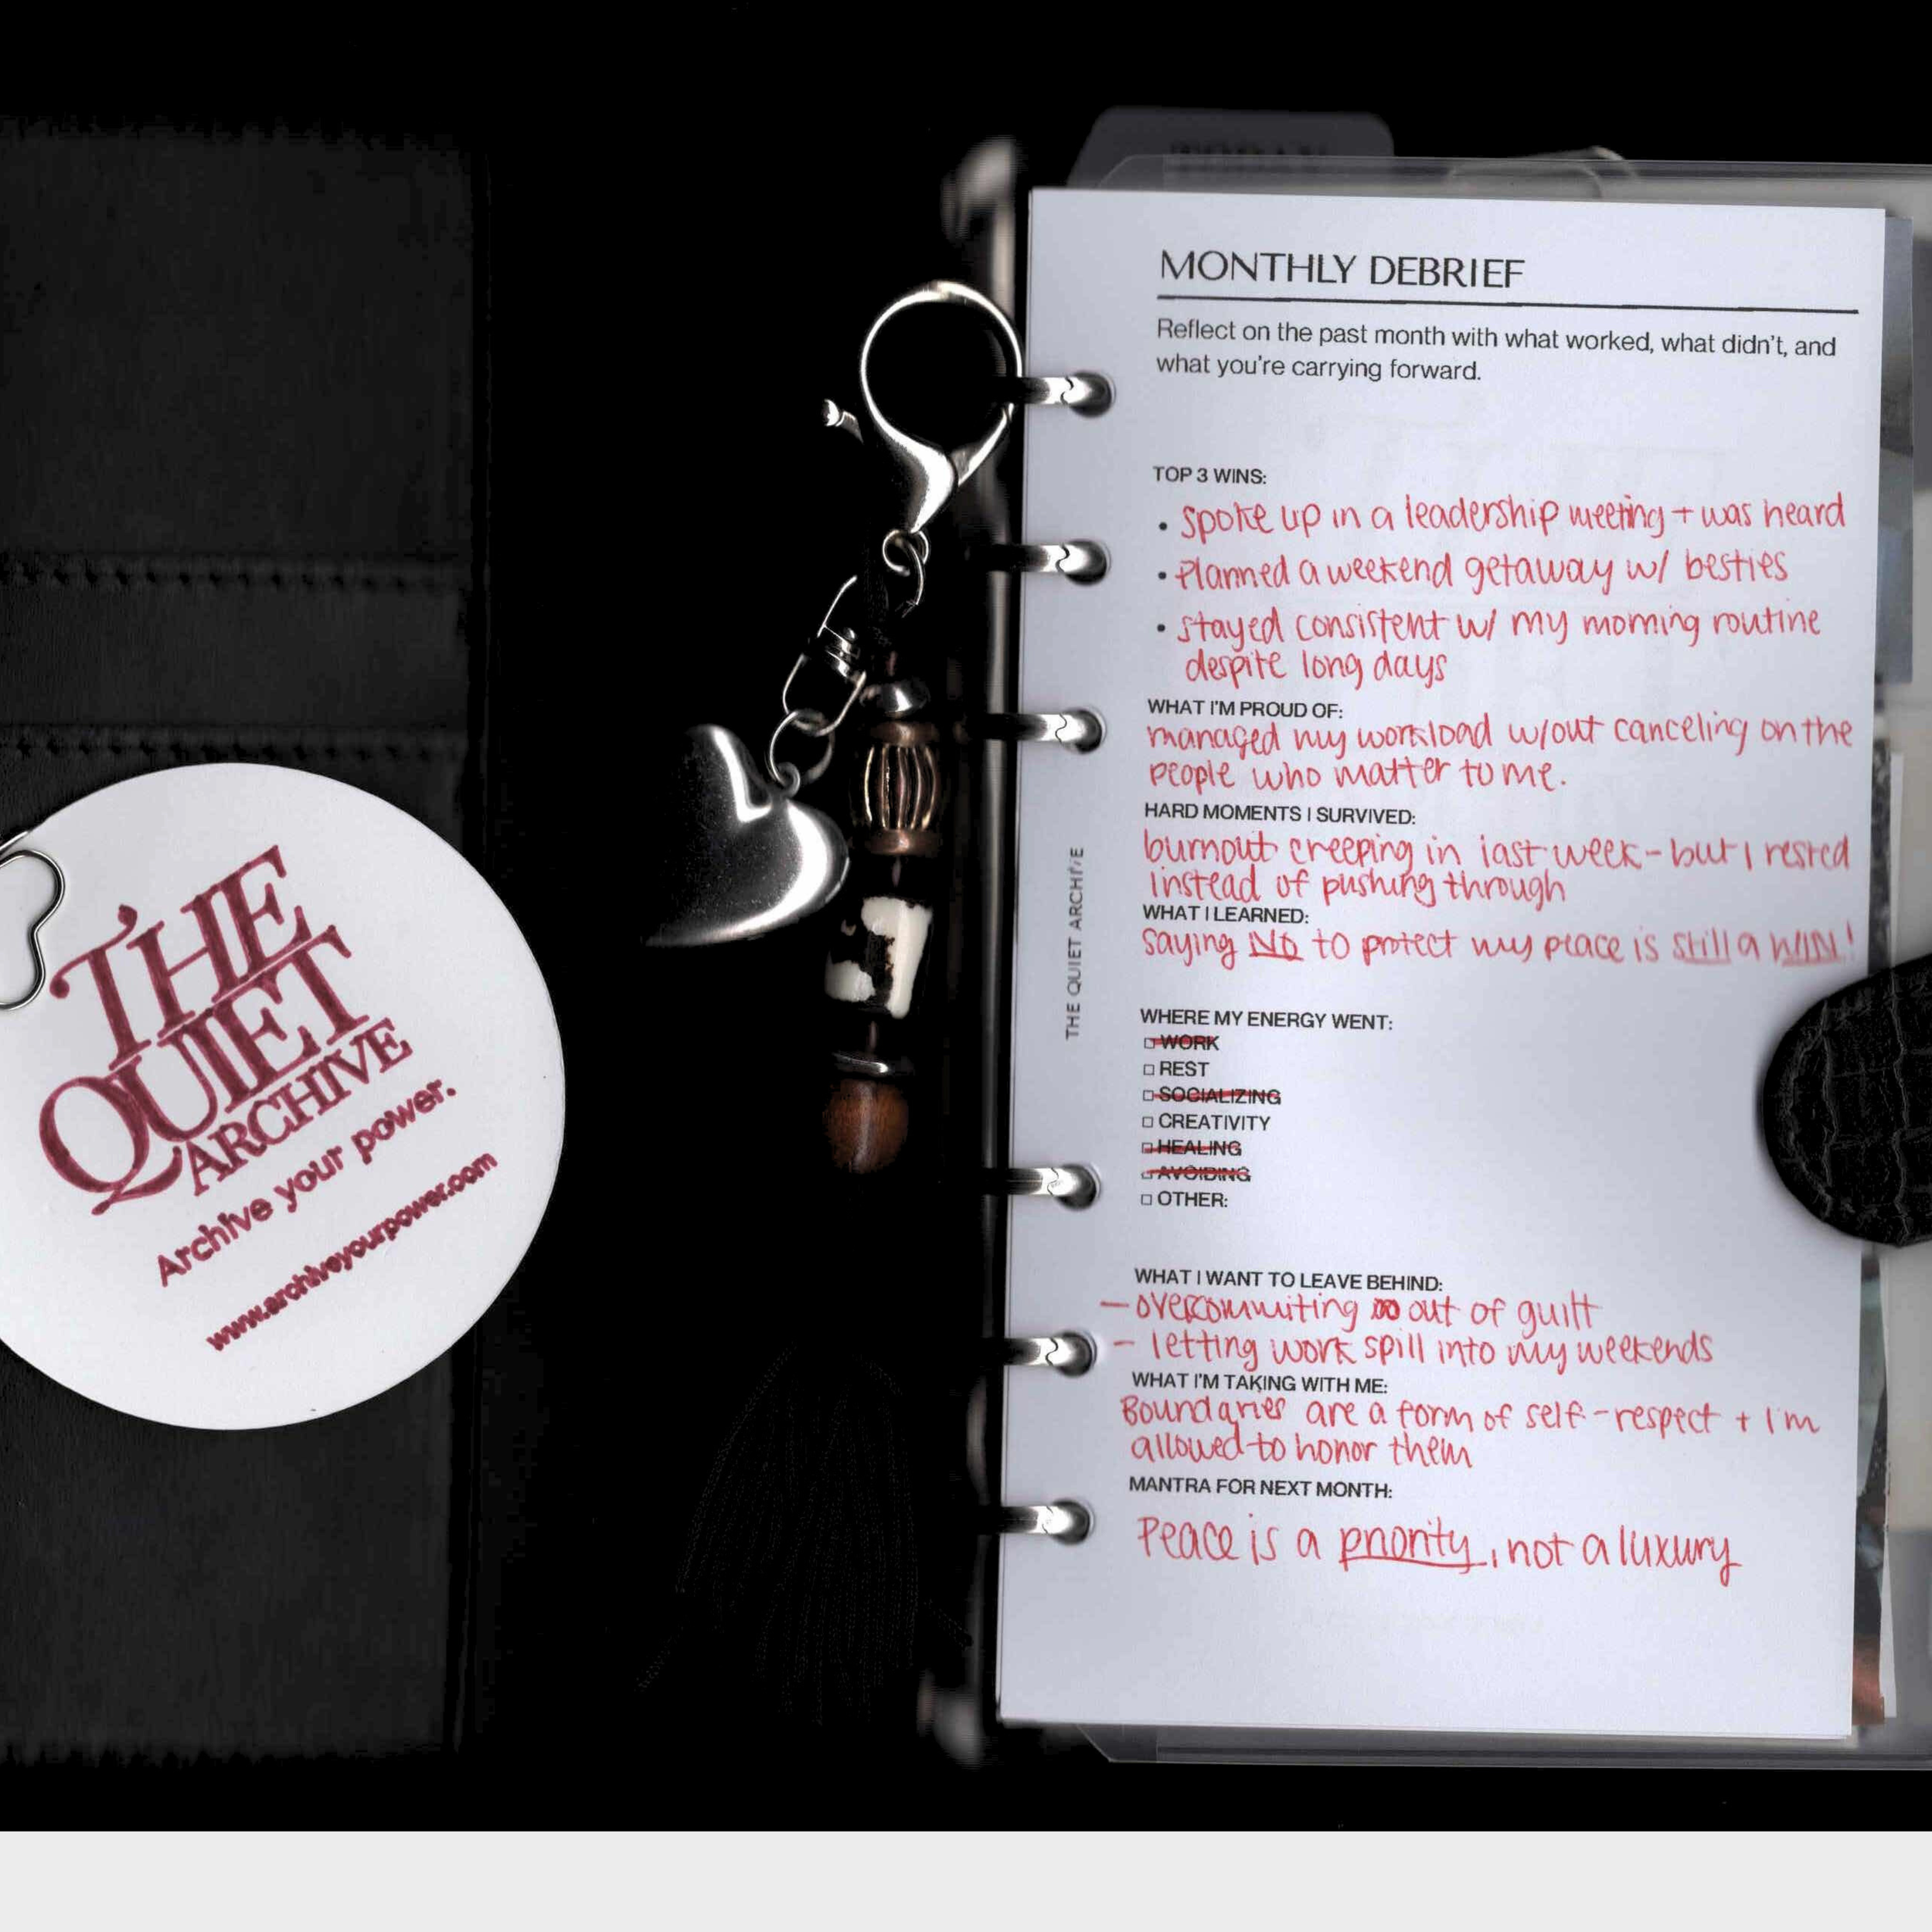 THE
QUIET
ARCHIVE
Archive your power.
www.archiveyourpower.com
THE QUIET ARCHIVE
MONTHLY DEBRIEF
Reflect on the past month with what worked, what didn't, and
what you're carrying forward.
TOP 3 WINS:
• spoke up in a leadership meeting + was heard
• Planned a weekend getaway w/ besties
• stayed consistent w/ my morning routine
despite long days
WHAT I'M PROUD OF:
managed my workload w/out canceling on the
people who matter to me.
HARD MOMENTS I SURVIVED:
burnout creeping in last week - but I rested
instead of pushing through
WHAT I LEARNED:
saying NO to protect my peace is still a WIN!
WHERE MY ENERGY WENT:
□ WORK
□ REST
□ SOCIALIZING
□ CREATIVITY
□ HEALING
□ AVOIDING
□ OTHER:
WHAT I WANT TO LEAVE BEHIND:
- overcommiting out of guilt
- letting work spill into my weekends
WHAT I'M TAKING WITH ME:
Boundaries are a form of self-respect + I'm
allowed to honor them
MANTRA FOR NEXT MONTH:
Peace is a priority, not a luxury